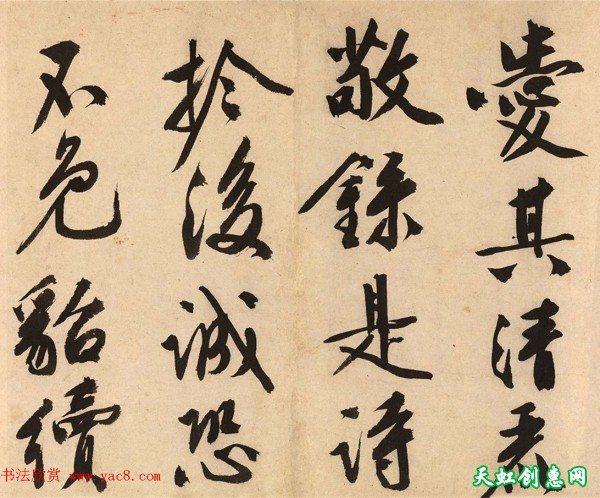 愛其清
敬錄是詩
扵後誠恐
不免貂續
书法欣赏 www.yac8.com
天虹创惠网